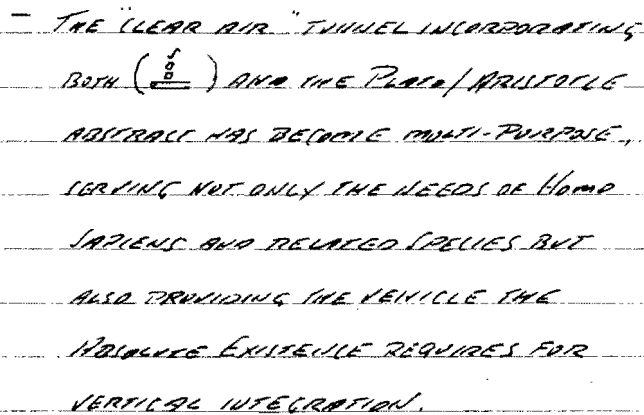 — THE "CLEAR AIR" TUNNEL INCORPORATING
BOTH ( ) AND THE PLATO/ARISTOTLE
ABSTRACT HAS BECOME MULTI-PURPOSE,
SERVING NOT ONLY THE NEEDS OF HOMO
SAPIENS AND RELATED SPECIES BUT
ALSO PROVIDING THE VEHICLE THE
ABSOLUTE EXISTENCE REQUIRES FOR
VERTICAL INTEGRATION.